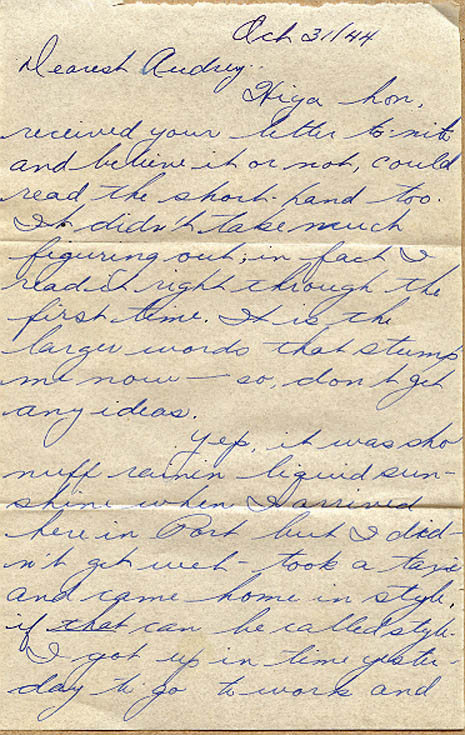 Oct 31/44
Dearest Audrey:
Hiya hon,
received your letter to-nite
and believe it or not, could
read the short-hand too.
It didn't take much
figuring out; in fact I
read it right through the
first time. It is the
larger words that stump
me now — so, don't get
any ideas.
Yep, it was sho
nuff rainin liquid sun-
shine when I arrived
here in Port but I did-
n't get wet - took a taxi
and came home in style,
if that can be called style.
I got up in time yester-
day to go to work and